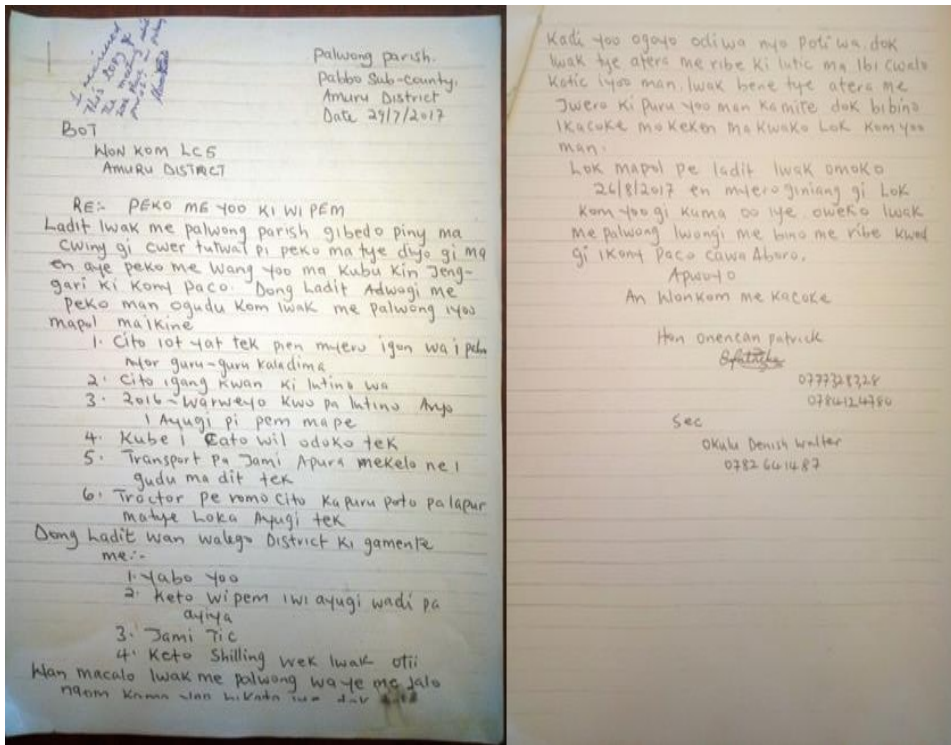 I received
This 30/8/17
Palwong parish.
Pabbo Sub-county.
Amuru District
Date 29/7/2017
BOT
WON KOM LC5
AMURU DISTRICT
RE:- PEKO ME YOO KI WI PEM
Ladit lwak me palwong parish gibedo piny ma
cwiny gi cwer tutwal pi peko ma tye diyo gi ma
en aye peko me wang yoo ma kubu kin Jeng-
gari ki Kony paco. Dong Ladit Adwogi me
peko man ogudu kom lwak me palwong iyoo
mapol maikine
1. Cito iot yat tek pien myero igon wa i pem
nyor guru-guru kaladima
2. Cito igang kwan ki lutino wa
3. 2016 - Warweyo kwo pa lutino Aryo
i Ayugi pi pem mape
4. Kube i cato wil odoko tek
5. Transport pa Jami Apura mekelo ne i
gudu ma dit tek
6. Tractor pe romo cito ka puru poto pa lapur
matye Loka Ayugi tek
Dong Ladit wan walego District ki gamente
me:-
1. Yabo yoo
2. Keto wi pem iwi ayugi wadi pa
ayiya
3. Jami Tic
4. Keto Shilling wek lwak otii
Wan macalo lwak me palwong wa ye me Jalo
ngom kama
Kadi yoo ogoyo odi wa nyo poti wa, dok
lwak tye atera me ribe ki lutic ma ibi cwalo
Katic iyoo man. lwak bene tye atera me
Jwero ki puru yoo man ka mite dok bibino
ikacoke mo keken ma kwako Lok kom yoo
man.
Lok mapol pe ladit lwak omoko
26/8/2017 en myero giniang gi Lok
kom yoo gi kuma oo iye. oweko lwak
me palwong lwongi me bino me ribe kwed
gi ikony paco cawa Aboro.
Apwoyo
An Wonkom me kacoke
Hon Onencan patrick
0777328328
0784124780
Sec
Okulu Denish Walter
0782641487